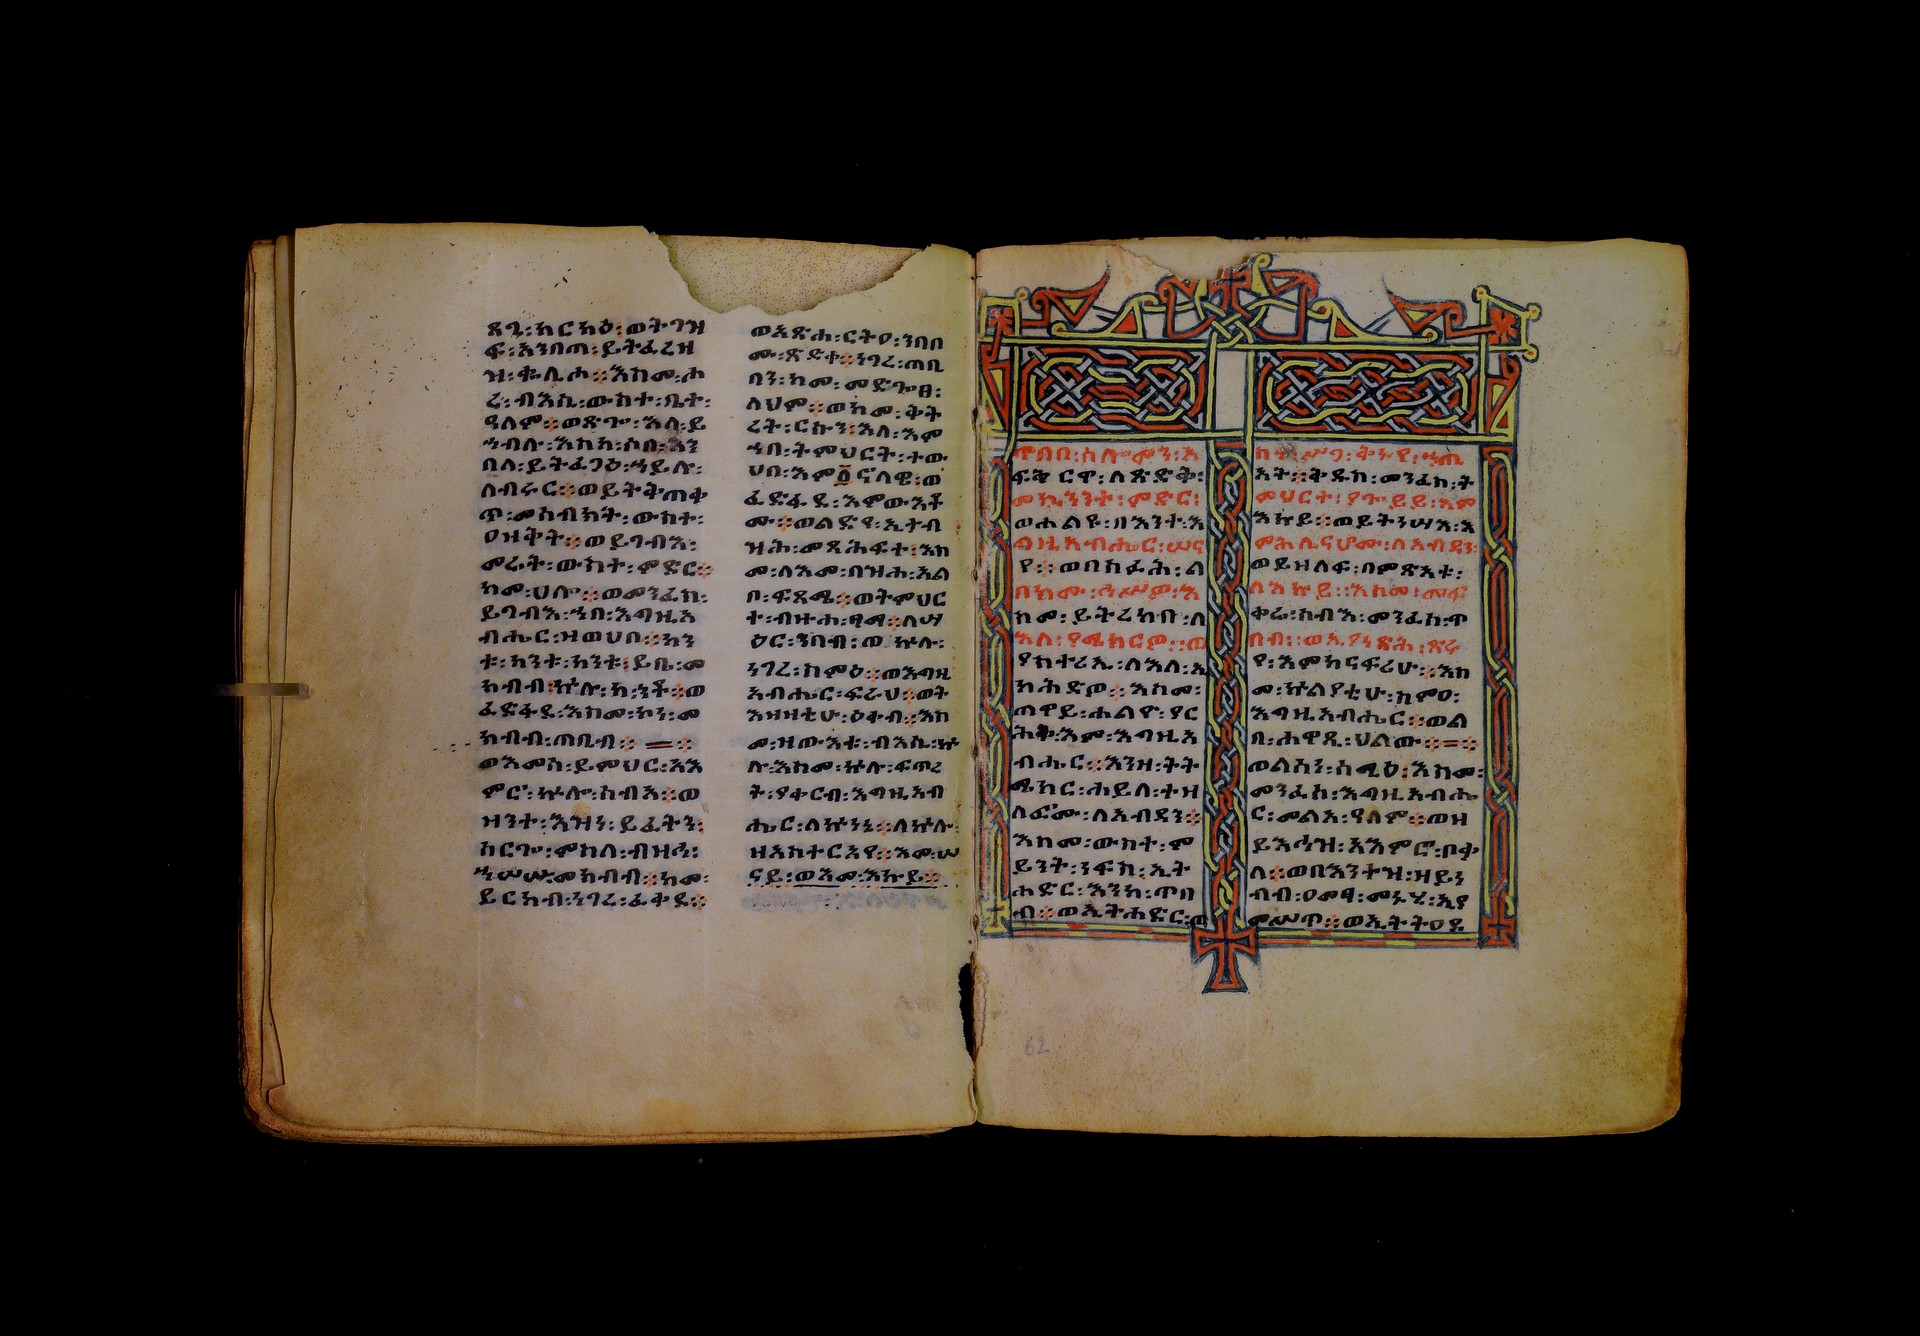 ጸጌ፡ከርካዕ፡ወትገዝ
ፍ፡አንበጣ፡ይትፈረዝ
ዝ፡ቈሊሐ፡፡እስመ፡ሐ
ረ፡ብእሲ፡ውስተ፡ቤተ፡
ዓለም፡፡ወጽጐ፡እለ፡ይ
ኀብሉ፡እስከ፡ሶበ፡እን
በለ፡ይትፈገዕ፡ኀይሉ፡
ለብሩር፡፡ወይትቅጠቀ
ጥ፡መስብክት፡ውስተ፡
ዐዘቅት፡፡ወይገብእ፡
መሬት፡ውስተ፡ምድር፡፡
ከመ፡ሀሎ፡፡ወመንፈስ፡
ይገብእ፡ኀበ፡እግዚአ
ብሔር፡ዘወሀበ፡፡ከን
ቱ፡ከንቱ፡ከንቱ፡ይቤ፡መ
ክብብ፡ኵሉ፡ከንቶ፡፡ወ
ፈድፋደ፡እስመ፡ኮነ፡መ
ክብብ፡ጠቢብ፡፡ = ፡፡
ወእመሰ፡ይምህር፡አእ
ምሮ፡ኵሎ፡ሰብአ፡፡ወ
ዘንተ፡እዝን፡ይፈትን፡
ሰርጐ፡ምስለ፡ብዝኁ፡
ኀሠሠ፡መክብብ፡፡ከመ፡
ይርከብ፡ነገረ፡ፈቀደ፡፡
ወእጽሐ፡ርትዐ፡ንበበ
ሙ፡ጽድቀ፡፡ነገረ፡ጠቢ
በን፡ከመ፡መድጐፀ፡
ላህም፡፡ወከመ፡ቅት
ረት፡ርኩን፡እለ፡እም
ኀበ፡ትምህርት፡ተው
ህበ፡እም፩ኖላዊ፡ወ
ፈድፋደ፡እምውእቶ
ሙ፡፡ወልድየ፡ኢትብ
ዝሕ፡መጻሕፍተ፡እስ
መ፡ለእመ፡በዝሐ፡አል
በ፡ፍጻሜ፡፡ወትምህር
ተ፡ብዙሐ፡ጻማ፡፡ለሥ
ዕር፡ንበብ፡ወኵሉ፡
ነገረ፡ስምዕ፡፡ወእግዚ
አብሔር፡ፍራህ፡፡ወት
እዛዘቲሁ፡ዕቀብ፡፡እስ
መ፡ዝውእቱ፡ብእሲ፡ኵ
ሉ፡እስመ፡ኵሉ፡ፍጥረ
ት፡ያቀርብ፡እግዚአብ
ሔር፡ለኵነኔ፡፡ለኵሉ፡
ዘአስተርአየ፡፡እመ፡ሠ
ናይ፡ወእመ፡እኩይ፡፡
ጥበበ፡ሰሎሞን፡አ
ፍቅርዋ፡ለጽድቅ፡
መኳንንተ፡ምድር፡
ወሐልዩ፡በእንተ፡እ
ግዚአብሔር፡ሠና
የ፡፡ወበስፌሐ፡ል
ብክሙ፡ኅሥዎ፡እ
ስመ፡ይትረከብ፡ለ
እለ፡ያሜክርዎ፡፡ወ
ያስተሬኢ፡ለእለ፡ኢ
ክሕድዎ፡፡እስመ፡
ጠዋይ፡ሐልዮ፡ያር
ሕቅ፡እም፡እግዚአ
ብሔር፡፡እንዘ፡ትት
ሜከር፡ሐይለ፡ተዘ
ለፎሙ፡ለአብዳን፡፡
እስመ፡ውስተ፡ም
ይንት፡ነፍስ፡ኢት
ሐድር፡እንከ፡ጥበ
ብ፡፡ወኢትሐድር፡ው
ስተ፡ሥጋ፡ቅንየ፡ኀጢ
አት፡፡ቅዱስ፡መንፈስ፡ት
ምህርተ፡ያጐይይ፡እም
እኩይ፡፡ወይትነሣእ፡እ
ምሕሊናሆሙ፡ለአብዳን፡
ወይዘለፍ፡በምጽአቱ፡
ለእኩይ፡፡እስመ፡መፍ
ቀሬ፡ሰብእ፡መንፈስ፡ጥ
በብ፡፡ወኢያነጽሕ፡ጽሩ
የ፡እምከናፍሪሁ፡፡እስ
መ፡ኵልያቲሁ፡ስምዐ፡
እግዚአብሔር፡፡ወል
በ፡ሐዋጺ፡ህልው፡፡=፡፡
ወልሳን፡ሰሚዕ፡እስመ፡
መንፈሰ፡እግዚአብሔ
ር፡መልአ፡ዓለም፡፡ወዘ
ይእኅዝ፡አእምሮ፡ቦቃ
ለ፡፡ወበእንተዝ፡ዘይነ
ብብ፡ዐመፃ፡መኑሂ፡ኢየ
መሥጥ፡፡ወኢትትዐደ
62